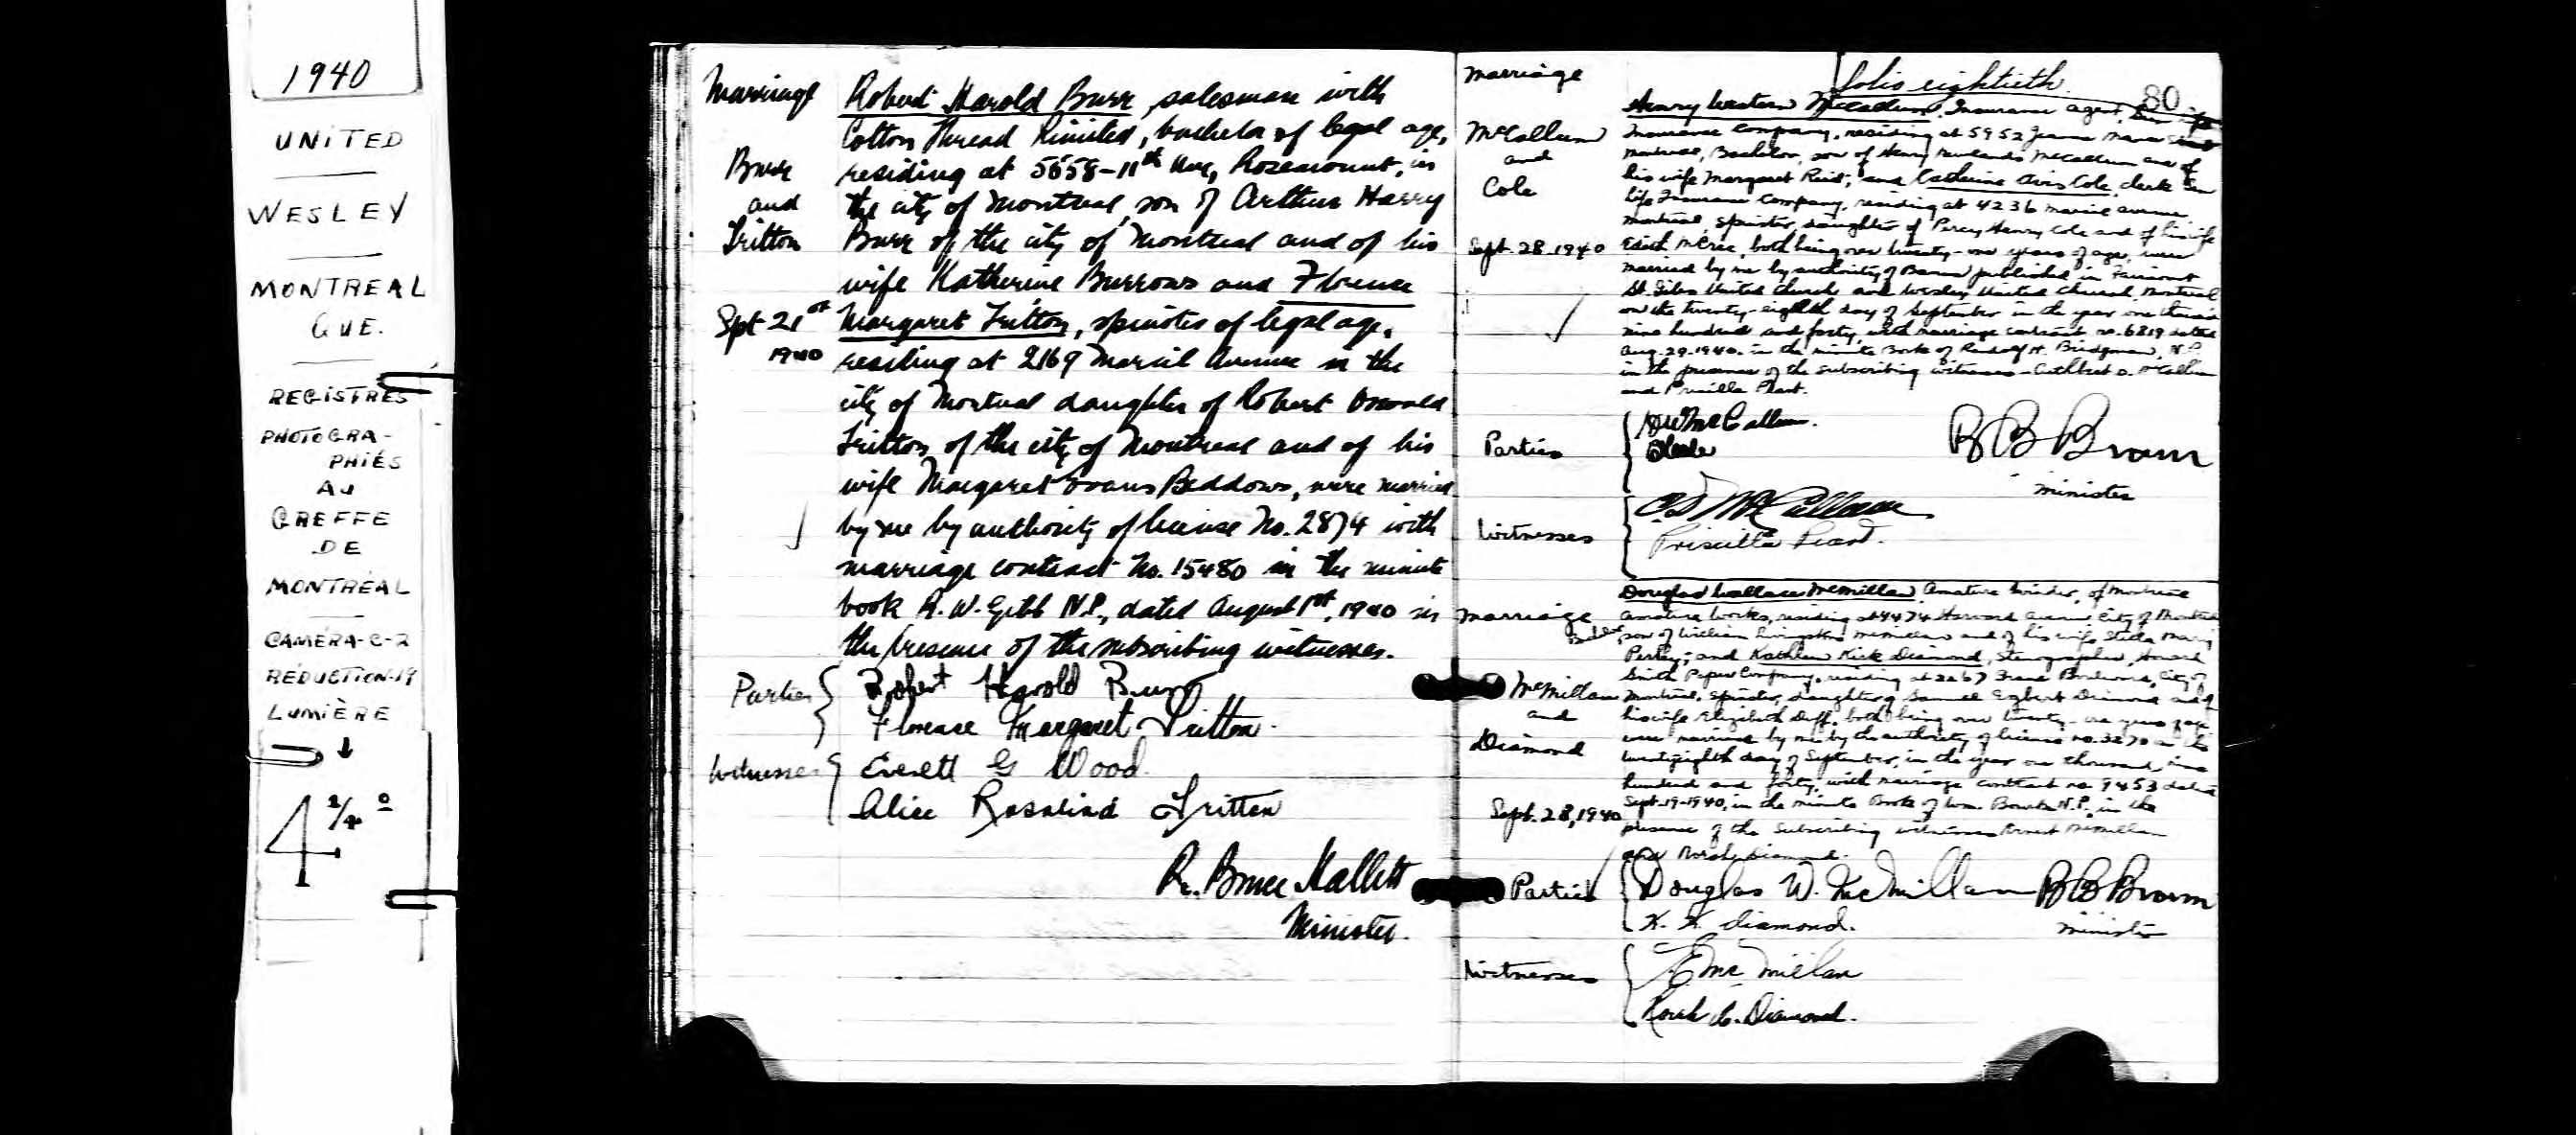 1940
UNITED
WESLEY
MONTREAL
QUE.
REGISTRES
PHOTOGRA-
PHIÉS
AU
GREFFE
DE
MONTRÉAL
CAMÉRA-C-2
RÉDUCTION-19
LUMIÈRE
4 2/4 °
Marriage
Burr
and
Tritton
Sept 21st
1940
Robert Harold Burr, salesman with
Cotton Thread Limited, bachelor of legal age,
residing at 5658-11th Ave, Rosemount, in
the city of Montreal, son of Arthur Harry
Burr of the city of Montreal and of his
wife Katherine Burrows and Florence
Margaret Tritton, spinster of legal age,
residing at 2169 Marcil Avenue in the
city of Montreal daughter of Robert Oswald
Tritton of the city of Montreal and of his
wife Margaret Evans Beddows, were married
by me by authority of license No. 2874 with
marriage contract No. 15480 in the minute
book R. W. Gibb N.P., dated August 1st, 1940 in
the presence of the subscribing witnesses.
Parties
Robert Harold Burr
Florence Margaret Tritton.
Witnesses
Everett G Wood
Alice Rosalind Tritton
R. Bruce Hallett
Minister.
folio eightieth
80
Marriage
McCallum
and
Cole
Sept. 28-1940
Henry McCallum, Insurance agent,
Insurance Company, residing at 5952 Jeanne Mance
Montreal, Bachelor, son of Henry Newlands McCallum and of
his wife Margaret Reid; and Catherine Avis Cole, clerk Sun
Life Insurance Company, residing at 4236 avenue,
Montreal, spinster, daughter of Percy Henry Cole and of his wife
Edith McCree, both being over twenty-one years of age, were
married by me by authority of Banns published in Fairmont
St. Giles United Church and Wesley United Church, Montreal
on the twenty-eighth day of September in the year one thousand
nine hundred and forty, with marriage contract no. 6819 dated
Aug. 29-1940. in the minute Book of H. Bridgman, N.P.
in the presence of the subscribing witnesses - Cuthbert D. McCallum
and Priscilla Plant.
Parties
HW McCallum.
Witnesses
C.D. McCallum
Priscilla
B B Brown
minister
Marriage
McMillan
and
Diamond
Sept. 28, 1940
Douglas Wallace McMillan, Amature Winder, of Montreal
Amature Works, residing at 4474 Harvard Avenue, City of Montreal
son of William Livingston McMillan and of his wife Stella Mary
Perley; and Kathleen Kirk Diamond, Stenographer, Howard
Smith Paper Company, residing at 2267 City of
Montreal, Spinster, daughter of Samuel Egbert Diamond and of
his wife Elizabeth Duff, both being over twenty-one years of age
were married by me by the authority of license no. 3270 on the
twentyeighth day of September, in the year one thousand, nine
hundred and forty, with marriage contract no. 9453 dated
Sept. 19-1940, in the minute Book of Wm. Bourke N.P. in the
presence of the subscribing witnesses Ernest McMillan
and Diamond.
Parties
Douglas W. McMillan
K. K. Diamond.
B B Brown
minister
Witnesses
E McMillan
Diamond.